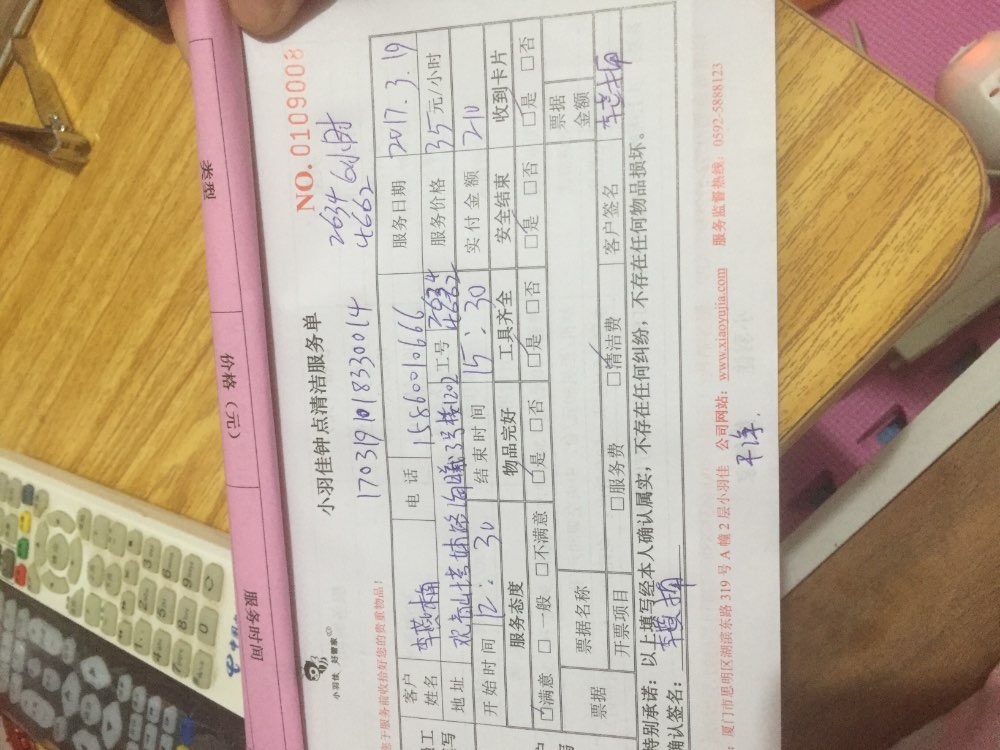 小羽佳钟点清洁服务单
NO. 01109008
小羽佳 好管家
1703191018330014
2634 6小时
4662
您于服务前收拾好您的贵重物品!
客户姓名
电话 15860010666
服务日期 2017.3.19
地址
工号 2634 4662
服务价格 35元/小时
开始时间 12:30
结束时间 15:30
实付金额 210
服务态度 物品完好 工具齐全 安全结束 收到卡片
□满意 □一般 □不满意 □是 □否 □是 □否 □是 □否 □是 □否
票据 票据名称
票据金额
开票项目 □服务费 □清洁费 客户签名
特别承诺:以上填写经本人确认属实,不存在任何纠纷,不存在任何物品损坏。
确认签名:
:厦门市思明区湖滨东路 319 号 A 幢 2 层小羽佳 公司网站:www.xiaoyujia.com 服务监督热线:0592-5888123
类型
价格(元)
服务时间